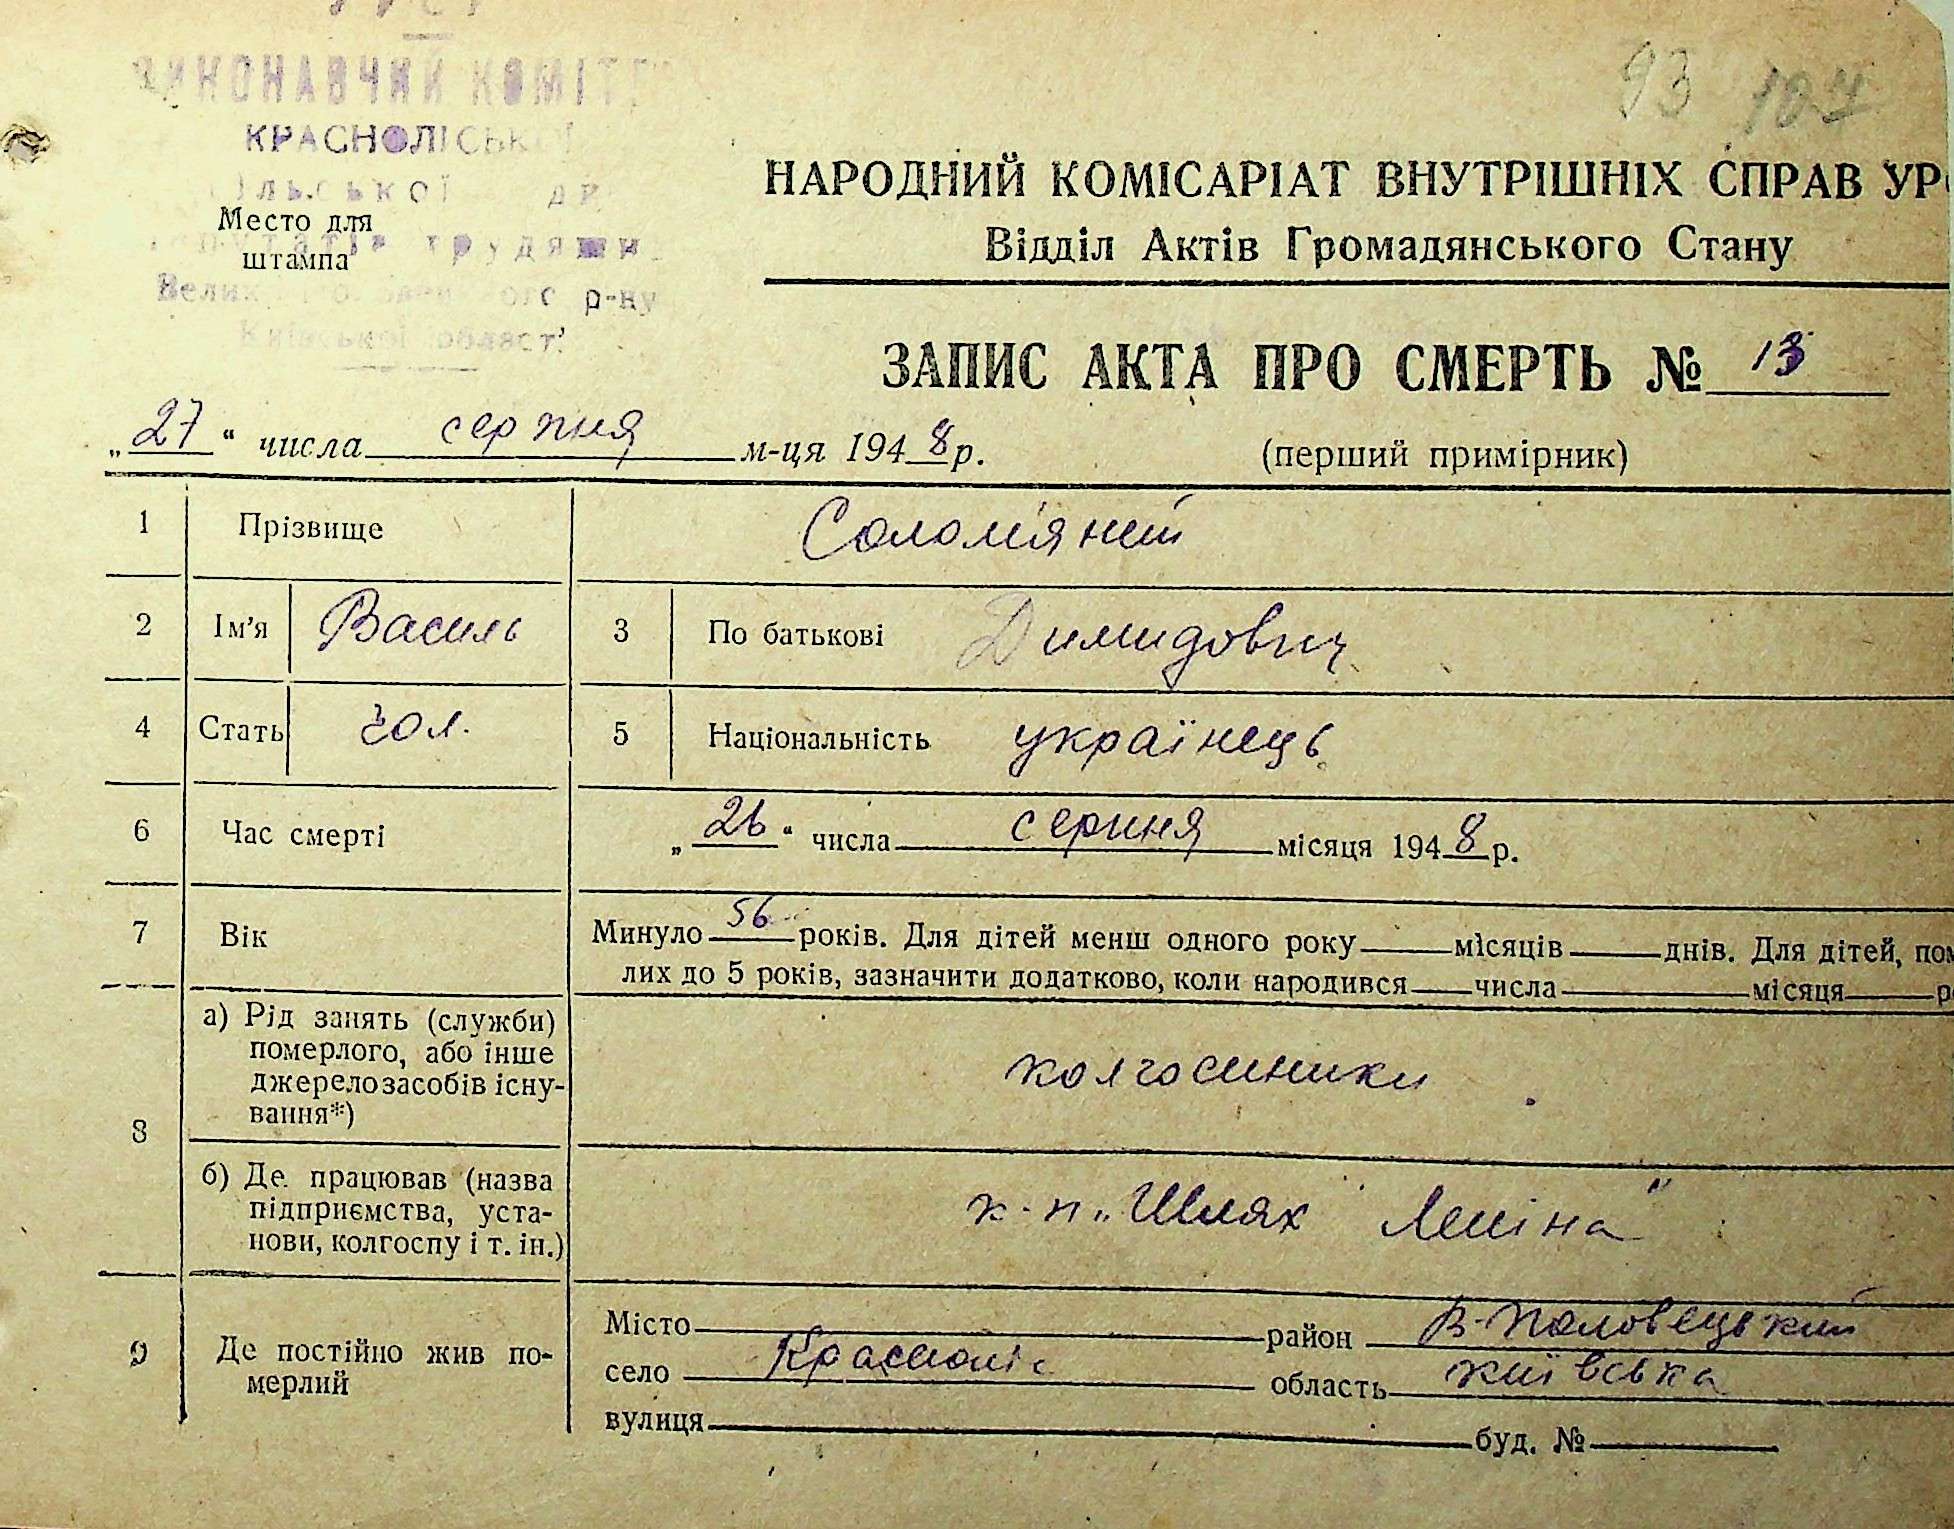 ВИКОНАВЧИЙ КОМІТЕТ
КРАСНОЛІСЬКОЇ
Сільської
трудящих
р-ну
Київської області
93 107
Место для
штампа
НАРОДНИЙ КОМІСАРІАТ ВНУТРІШНІХ СПРАВ УР
Відділ Актів Громадянського Стану
ЗАПИС АКТА ПРО СМЕРТЬ № 13
„27“ числа серпня м-ця 1948 р.
(перший примірник)
1 Прізвище Солом'яний
2 Ім'я Василь 3 По батькові Димидович
4 Стать чол. 5 Національність українець
6 Час смерті „26“ числа серпня місяця 1948 р.
7 Вік Минуло 56 років. Для дітей менш одного року місяців днів. Для дітей, пом
лих до 5 років, зазначити додатково, коли народився числа місяця р
8 а) Рід занять (служби)
померлого, або інше
джерело засобів існу-
вання*)
колгоспники
б) Де працював (назва
підприємства, уста-
нови, колгоспу і т. ін.)
к-п „Шлях Леніна"
9 Де постійно жив по-
мерлий
Місто район В-Половецький
село Краснолі с область київська
вулиця буд. №